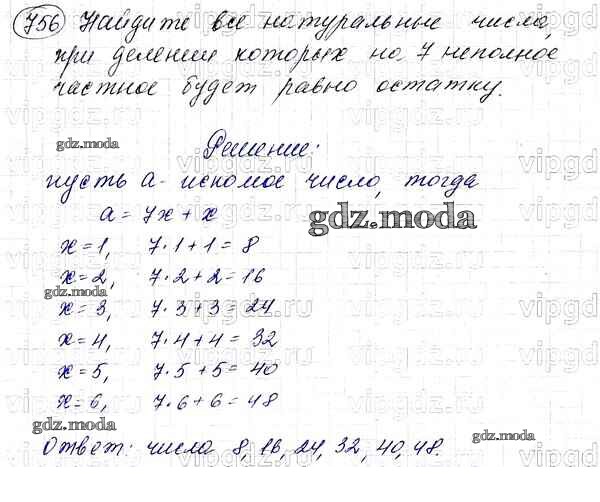 756 Найдите все натуральные числа,
при делении которых на 7 неполное
частное будет равно остатку.
gdz.moda
Решение:
пусть а - искомое число, тогда
а = 7х + х
gdz.moda
х = 1, 7·1 + 1 = 8
х = 2, 7·2 + 2 = 16
gdz.moda
х = 3, 7·3 + 3 = 24
х = 4, 7·4 + 4 = 32
х = 5, 7·5 + 5 = 40
х = 6, 7·6 + 6 = 48
gdz.moda
Ответ: числа 8, 16, 24, 32, 40, 48.
gdz.moda